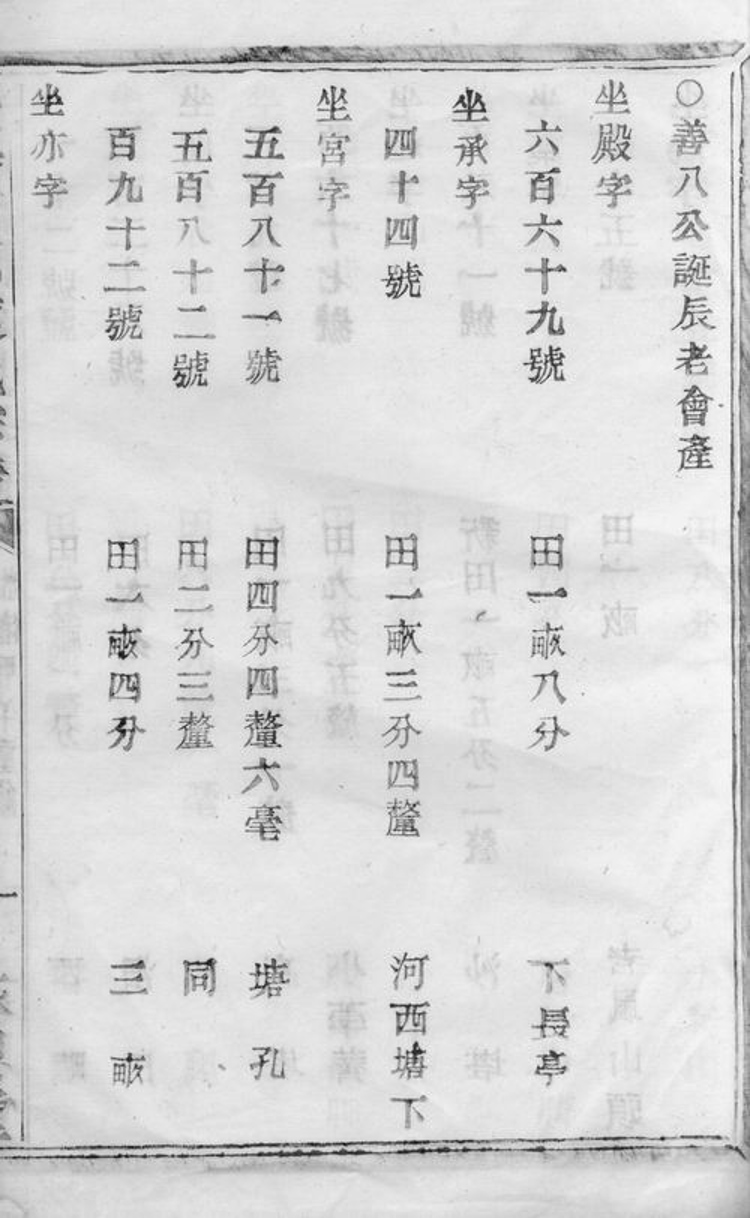 ○善八公誕辰老會產
坐殿字
六百六十九號 田一畝八分 下長亭
坐承字
四十四號 田一畝三分四釐 河西塘下
坐宮字
五百八十一號 田四分四釐六毫 塘孔
五百八十二號 田二分三釐 同
百九十二號 田一畝四分 三畝
坐亦字